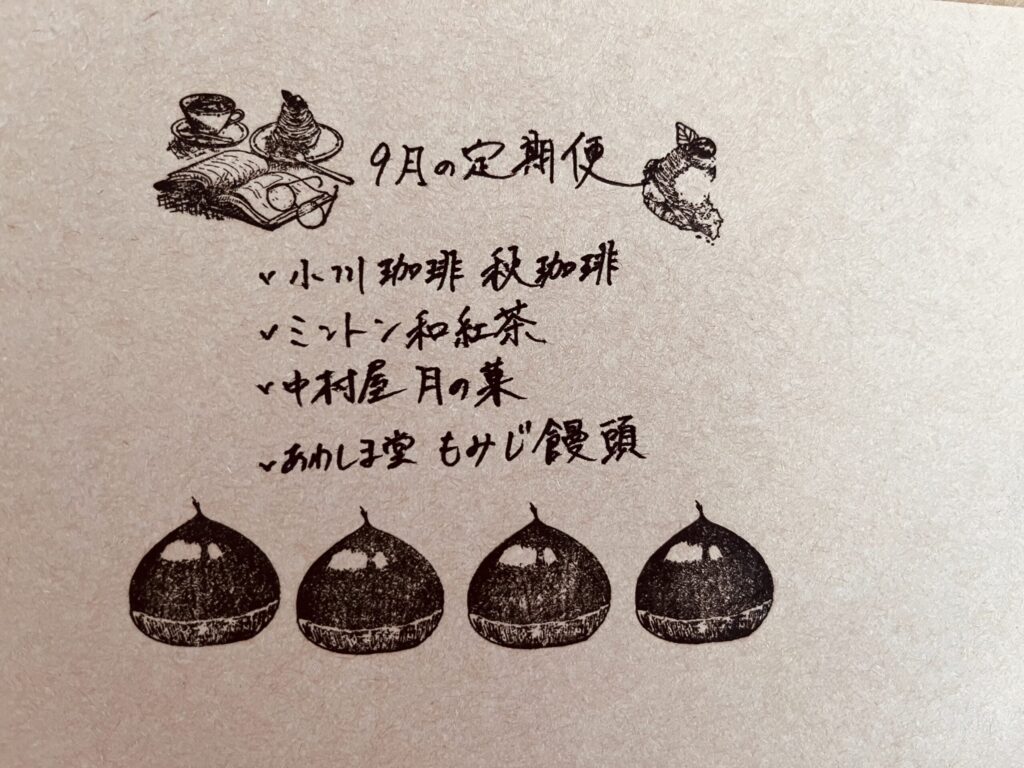 9月の定期便
✓小川珈琲 秋珈琲
✓ミントン和紅茶
✓中村屋 月の菓
✓あわしま堂 もみじ饅頭